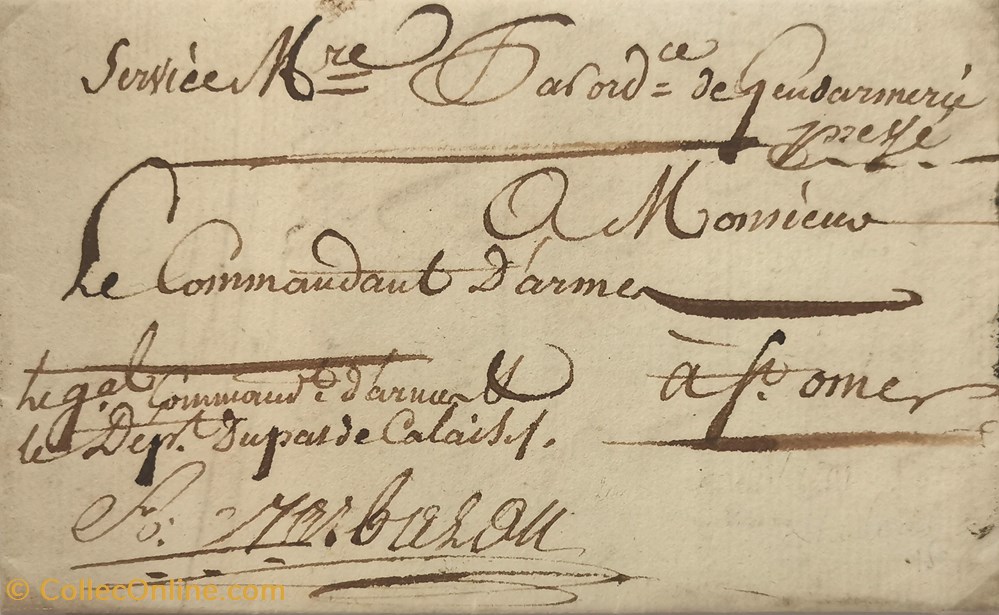 Service Mre Par ord=ce de Gendarmerie
pressé
A Monsieur
Le Commandant D'armes
à St. omer
Le gal Command.t d'armes &
le Dept. Du pas de Calais
© CollecOnline.com